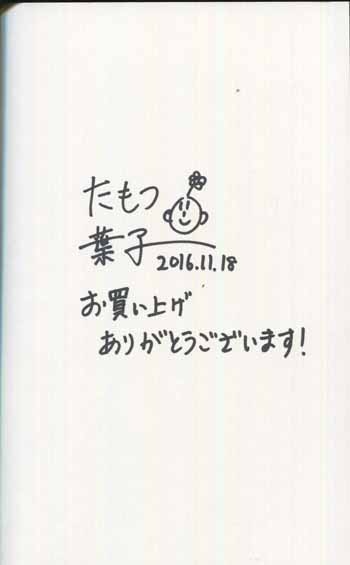 たもつ
葉子
2016.11.18
お買い上げ
ありがとうございます!